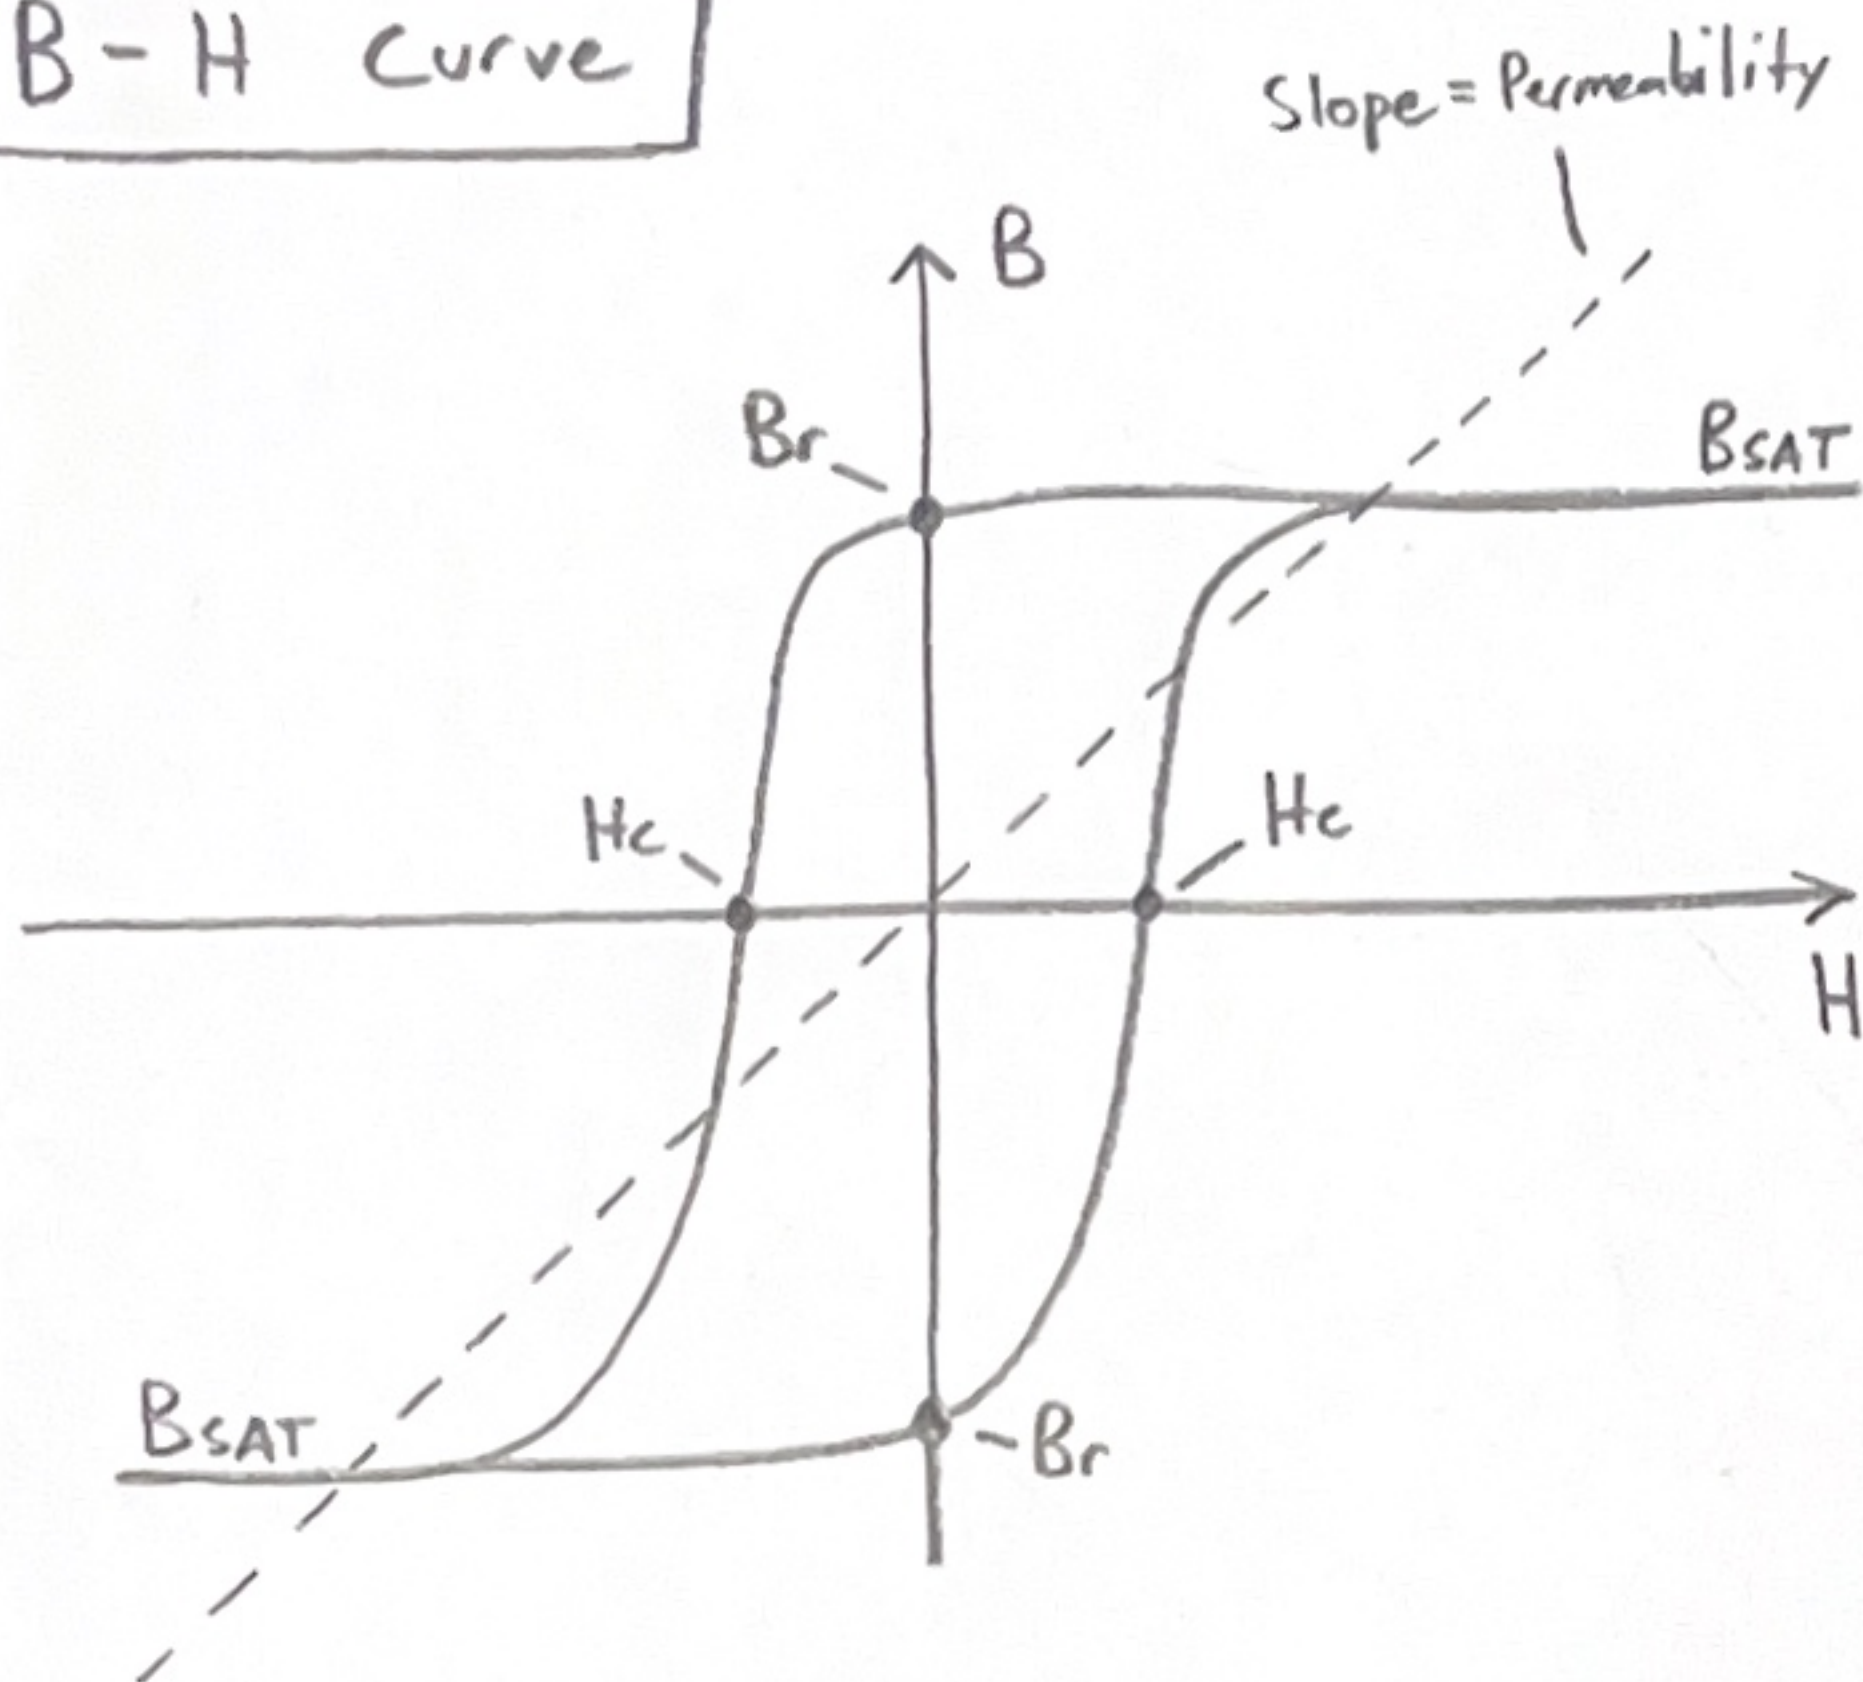 B - H Curve
Slope = Permeability
B
Br
BSAT
Hc
Hc
H
BSAT
-Br